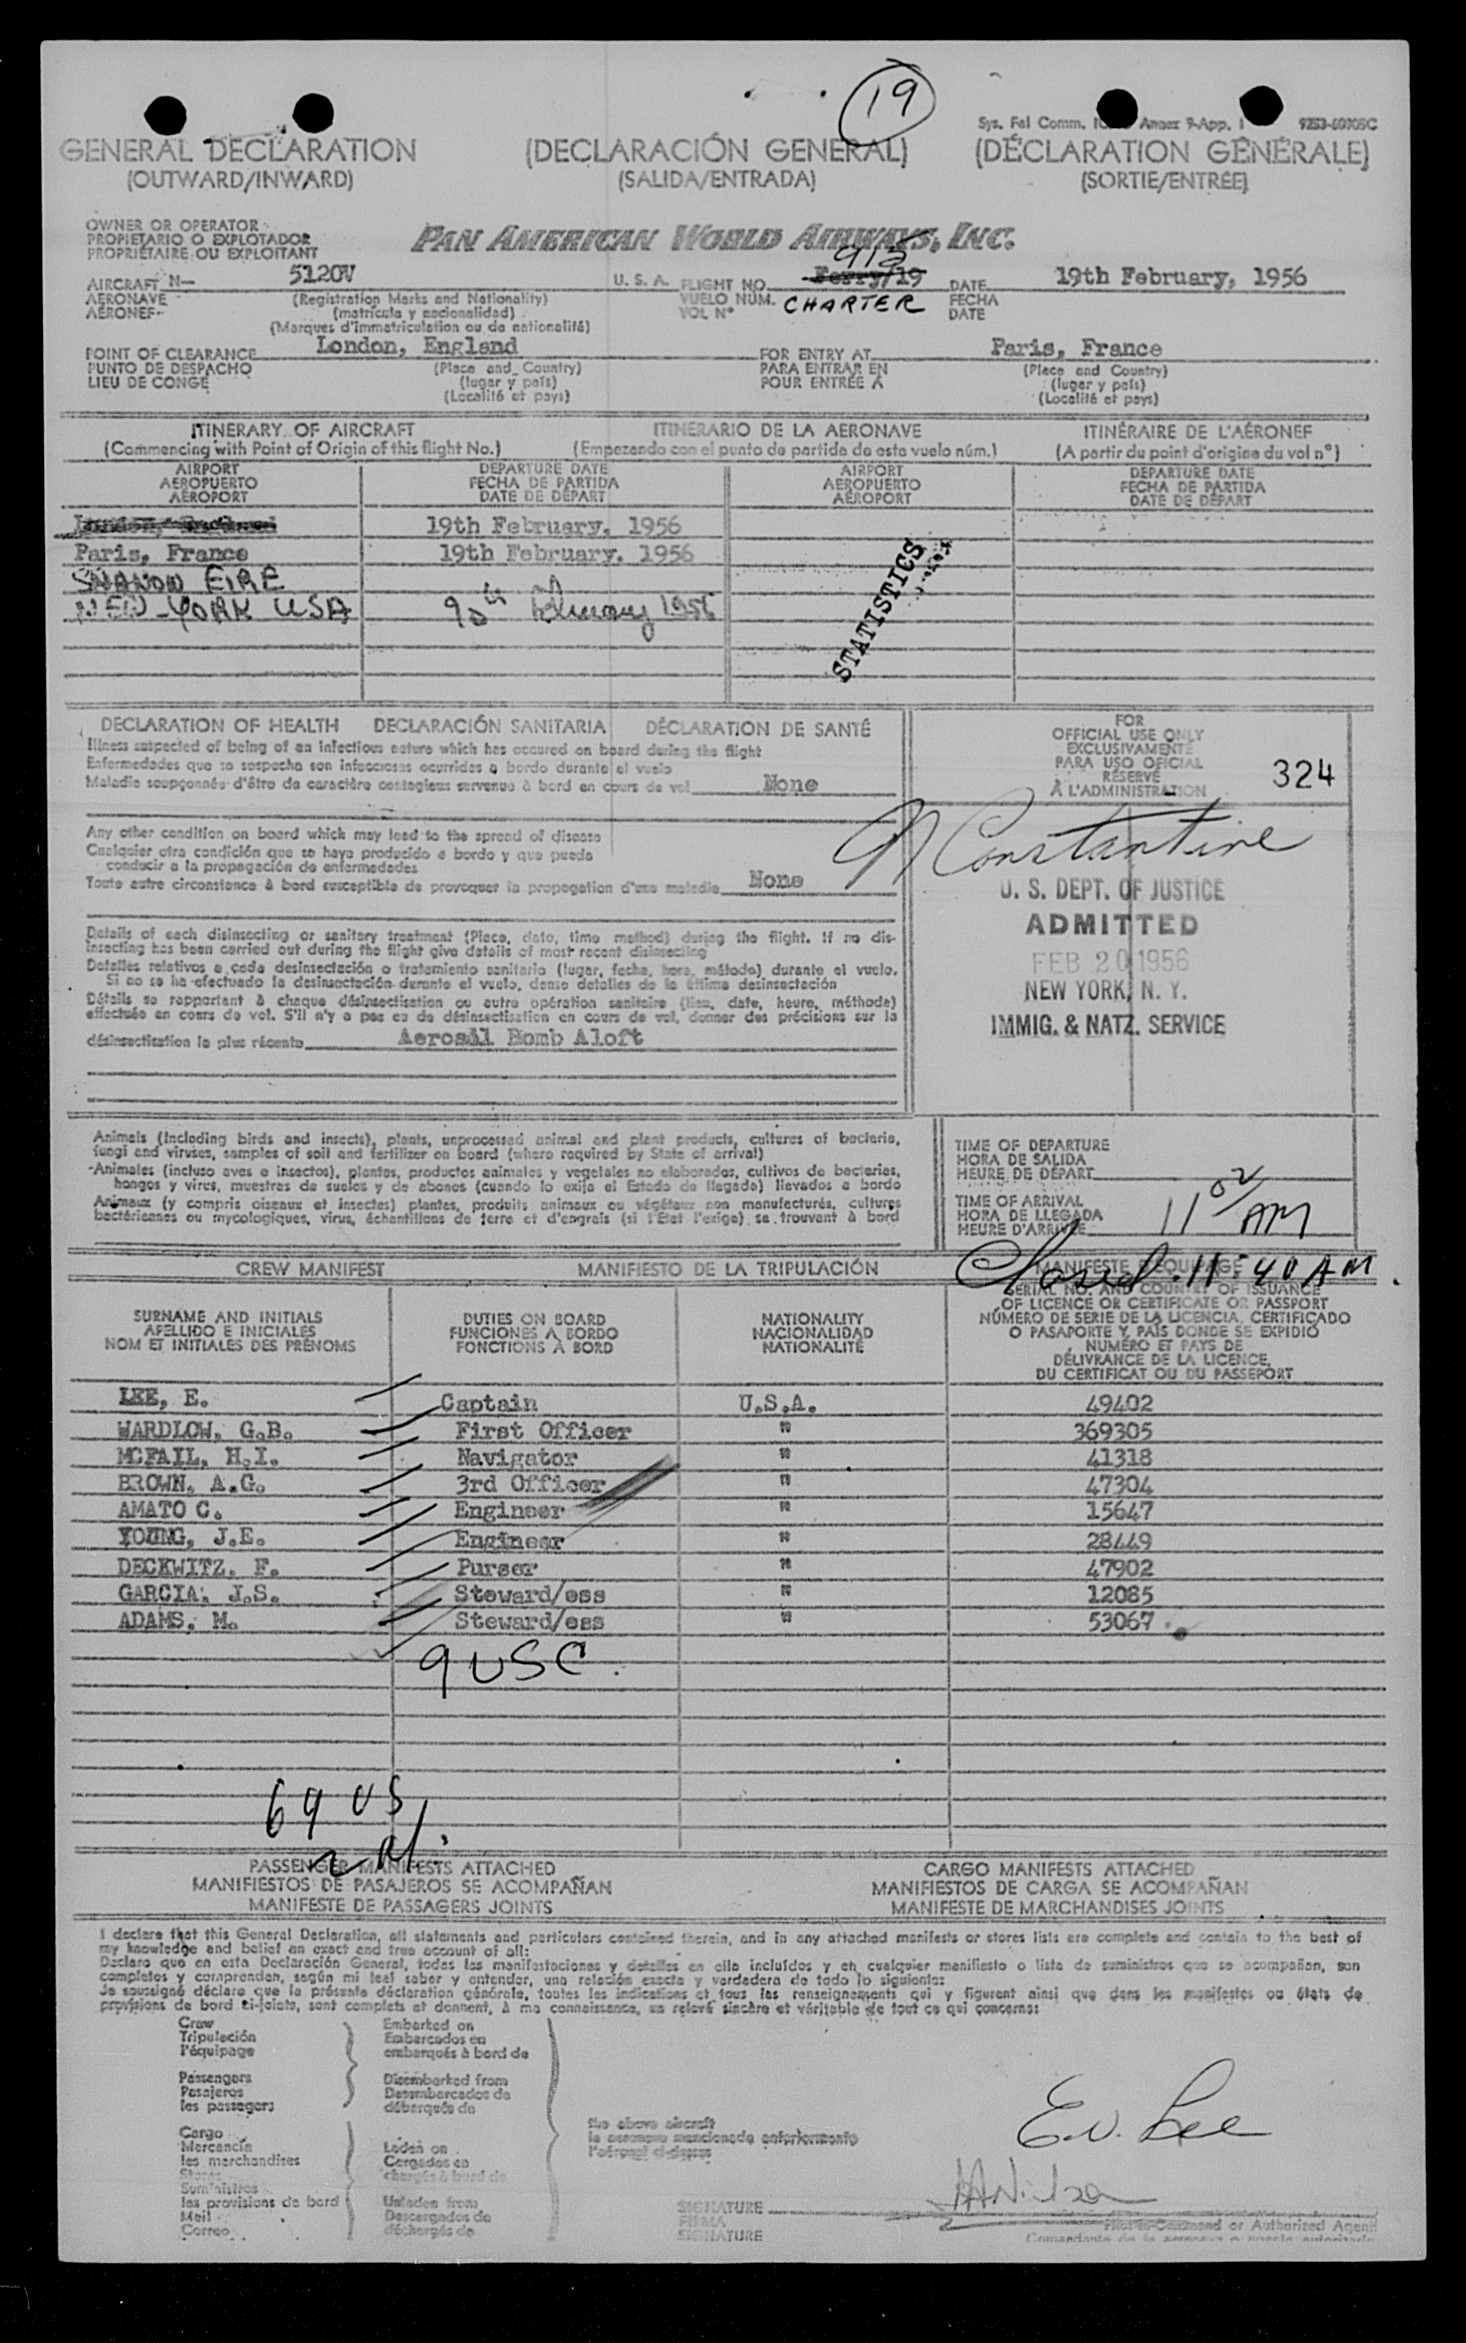 19
Sys. Fal Comm. Annex 9-App. 1 9253-80705C
GENERAL DECLARATION (DECLARACIÓN GENERAL) (DÉCLARATION GÉNÉRALE)
(OUTWARD/INWARD) (SALIDA/ENTRADA) (SORTIE/ENTRÉE)
OWNER OR OPERATOR
PROPIETARIO O EXPLOTADOR
PROPRIÉTAIRE OU EXPLOITANT
PAN AMERICAN WORLD AIRWAYS, INC.
AIRCRAFT N- 5120V U. S. A. FLIGHT NO. Ferry/19 DATE 19th February, 1956
AERONAVE (Registration Marks and Nationality) VUELO NÚM. CHARTER FECHA
AÉRONEF (matrícula y nacionalidad) VOL Nº DATE
(Marques d'immatriculation ou de nationalité)
POINT OF CLEARANCE London, England FOR ENTRY AT Paris, France
PUNTO DE DESPACHO (Place and Country) PARA ENTRAR EN (Place and Country)
LIEU DE CONGÉ (lugar y país) POUR ENTRÉE À (lugar y país)
(Localité et pays) (Localité et pays)
ITINERARY OF AIRCRAFT ITINERARIO DE LA AERONAVE ITINÉRAIRE DE L'AÉRONEF
(Commencing with Point of Origin of this flight No.) (Empezando con el punto de partida de este vuelo núm.) (A partir du point d'origine du vol nº)
AIRPORT DEPARTURE DATE AIRPORT DEPARTURE DATE
AEROPUERTO FECHA DE PARTIDA AEROPUERTO FECHA DE PARTIDA
AÉROPORT DATE DE DÉPART AÉROPORT DATE DE DÉPART
London, England 19th February, 1956
Paris, France 19th February. 1956
SHANON EIRE
NEW-YORK USA 20th February 1956
STATISTICS
DECLARATION OF HEALTH DECLARACIÓN SANITARIA DÉCLARATION DE SANTÉ
Illness suspected of being of an infectious nature which has occured on board during the flight
Enfermedades que se sospecha son infecciosas ocurridas a bordo durante el vuelo
Maladie soupçonnée d'être de caractère contagieux survenue à bord en cours de vol None
FOR
OFFICIAL USE ONLY
EXCLUSIVAMENTE
PARA USO OFICIAL
RÉSERVÉ
À L'ADMINISTRATION
324
Any other condition on board which may lead to the spread of disease
Cualquier otra condición que se haya producido a bordo y que pueda
conducir a la propagación de enfermedades
Toute autre circonstance à bord susceptible de provoquer la propagation d'une maladie None
N Constantine
U. S. DEPT. OF JUSTICE
ADMITTED
FEB 20 1956
NEW YORK, N. Y.
IMMIG. & NATZ. SERVICE
Details of each disinsecting or sanitary treatment (Place, date, time method) during the flight. If no dis-
insecting has been carried out during the flight give details of most recent disinsecting
Detalles relativos a cada desinsectación o tratamiento sanitario (lugar, fecha, hora, método) durante el vuelo.
Si no se ha efectuado la desinsectación durante el vuelo, dense detalles de la última desinsectación
Détails se rapportant à chaque désinsectisation ou autre opération sanitaire (lieu, date, heure, méthode)
effectuée en cours de vol. S'il n'y a pas eu de désinsectisation en cours de vol, donner des précisions sur la
désinsectisation la plus récente Aerosal Bomb Aloft
Animals (Including birds and insects), plants, unprocessed animal and plant products, cultures of bacteria,
fungi and viruses, samples of soil and fertilizer on board (where required by State of arrival)
Animales (incluso aves e insectos), plantas, productos animales y vegetales no elaborados, cultivos de bacterias,
hongos y virus, muestras de suelos y de abonos (cuando lo exija el Estado de llegada) llevados a bordo
Animaux (y compris oiseaux et insectes) plantes, produits animaux ou végétaux non manufacturés, cultures
bactériennes ou mycologiques, virus, échantillons de terre et d'engrais (si l'État l'exige) se trouvant à bord
TIME OF DEPARTURE
HORA DE SALIDA
HEURE DE DÉPART
TIME OF ARRIVAL
HORA DE LLEGADA
HEURE D'ARRIVÉE
11 02 AM
Closed 11:40 AM.
CREW MANIFEST MANIFIESTO DE LA TRIPULACIÓN MANIFESTE D'ÉQUIPAGE
SURNAME AND INITIALS
APELLIDO E INICIALES
NOM ET INITIALES DES PRÉNOMS
DUTIES ON BOARD
FUNCIONES A BORDO
FONCTIONS À BORD
NATIONALITY
NACIONALIDAD
NATIONALITÉ
SERIAL NO. AND COUNTRY OF ISSUANCE
OF LICENCE OR CERTIFICATE OR PASSPORT
NÚMERO DE SERIE DE LA LICENCIA, CERTIFICADO
O PASAPORTE Y PAÍS DONDE SE EXPIDIÓ
NUMÉRO ET PAYS DE
DÉLIVRANCE DE LA LICENCE,
DU CERTIFICAT OU DU PASSEPORT
LEE, E. Captain U.S.A. 49402
WARDLOW, G.B. First Officer " 369305
MCFAIL, H.I. Navigator " 41318
BROWN, A.G. 3rd Officer " 47304
AMATO C. Engineer " 15647
YOUNG, J.E. Engineer " 28449
DECKWITZ, F. Purser " 47902
GARCIA, J.S. Steward/ess " 12085
ADAMS, M. Steward/ess " 53067
9 USC.
69 US
PASSENGER MANIFESTS ATTACHED CARGO MANIFESTS ATTACHED
MANIFIESTOS DE PASAJEROS SE ACOMPAÑAN MANIFIESTOS DE CARGA SE ACOMPAÑAN
MANIFESTE DE PASSAGERS JOINTS MANIFESTE DE MARCHANDISES JOINTS
I declare that this General Declaration, all statements and particulars contained therein, and in any attached manifests or stores lists are complete and contain to the best of
my knowledge and belief an exact and true account of all:
Declaro que en esta Declaración General, todas las manifestaciones y detalles en ella incluídos y en cualquier manifiesto o lista de suministros que se acompañan, son
completos y comprenden, según mi leal saber y entender, una relación exacta y verdadera de todo lo siguiente:
Je soussigné déclare que la présente déclaration générale, toutes les indications et tous les renseignements qui y figurent ainsi que dans les manifestes ou états de
provisions de bord ci-joints, sont complets et donnent, à ma connaissance, un relevé sincère et véritable de tout ce qui concerne:
Crew Embarked on
Tripulación Embarcados en
l'équipage embarqués à bord de
Passengers Disembarked from
Pasajeros Desembarcados de
les passagers débarqués de
the above aircraft
la aeronave mencionada anteriormente
l'aéronef ci-dessus
Cargo
Mercancía Laden on
les marchandises Cargados en
Stores chargés à bord de
Suministros
les provisions de bord Unladen from
Mail Descargados de
Correo déchargés de
E.V. Lee
SIGNATURE
FIRMA
SIGNATURE
Pilot-in-Command or Authorized Agent